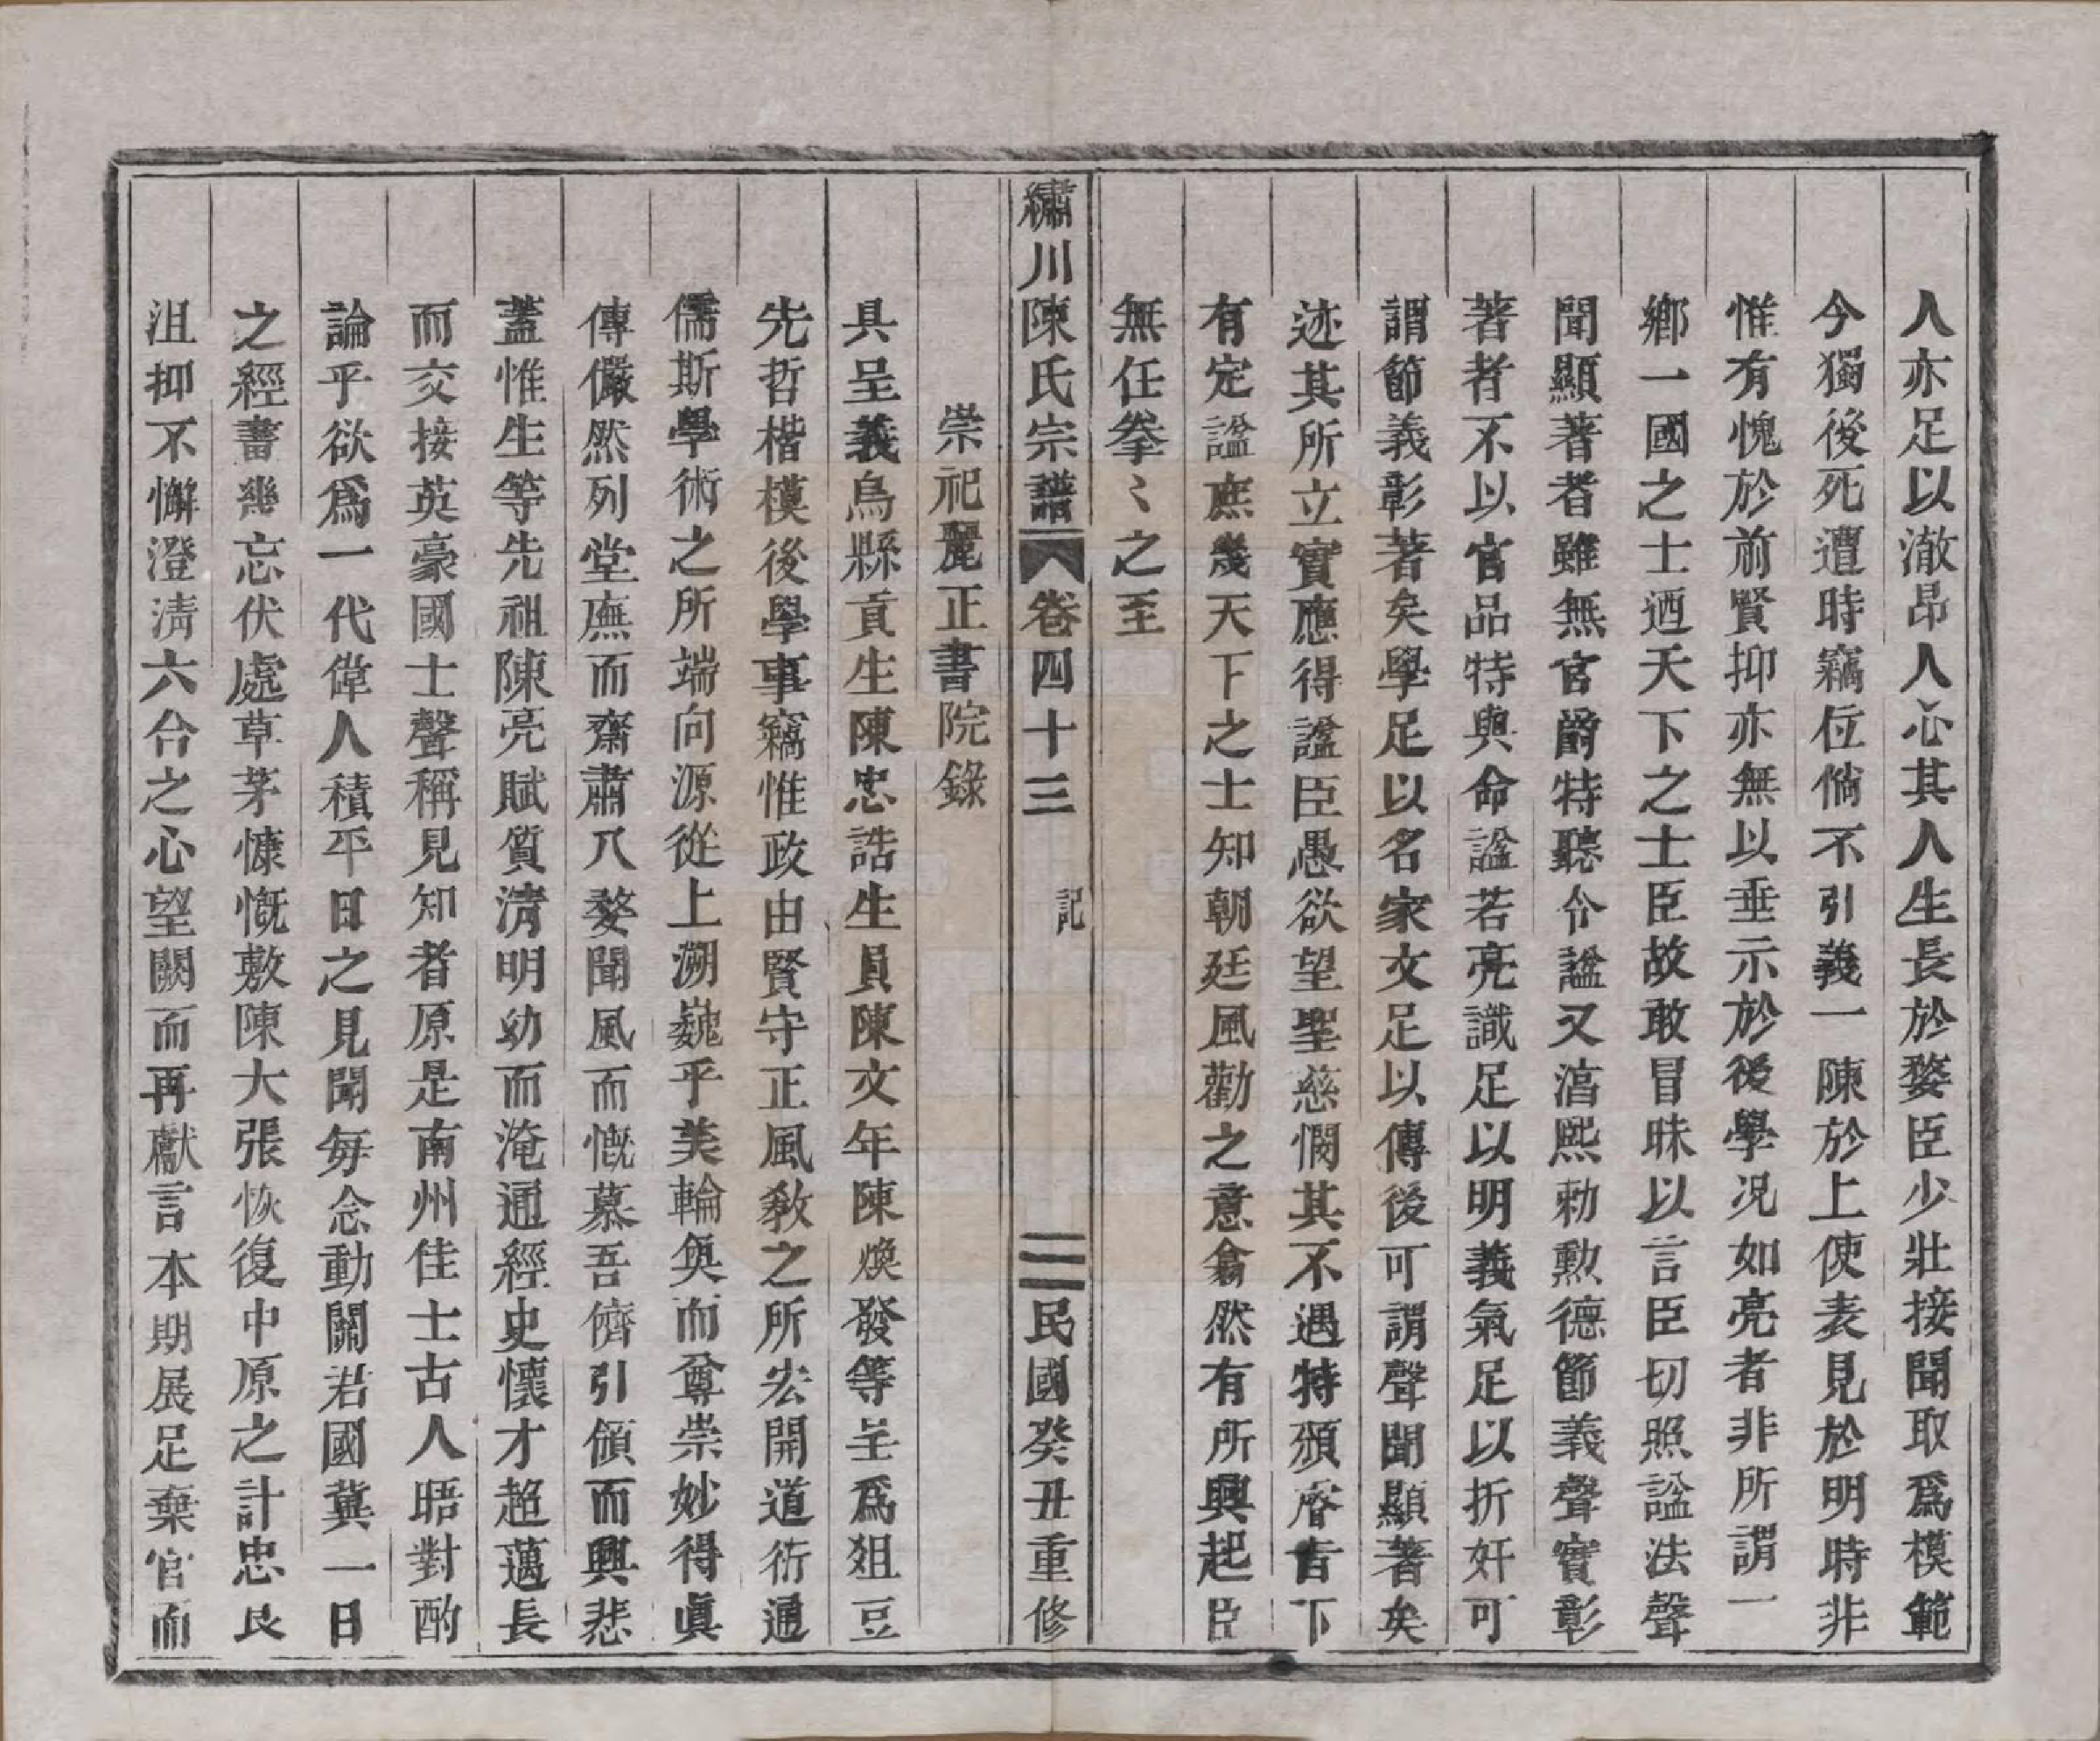 人亦足以澈昂人心其人生長於婺臣少壯接聞取爲模範
今獨後死遭時竊位倘不引義一陳於上使表見於明時非
惟有愧於前賢抑亦無以垂示於後學况如亮者非所謂一
鄉一國之士迺天下之士臣故敢冒昧以言臣切照諡法聲
聞顯著者雖無官爵特聽令諡又湻熙勅勲德節義聲實彰
著者不以官品特與命諡若亮識足以明義氣足以折奸可
謂節義彰著矣學足以名家文足以傳後可謂聲聞顯著矣
迹其所立實應得諡臣愚欲望聖慈憫其不遇特頒睿旨下
有定諡庶幾天下之士知朝廷風勸之意翕然有所興起臣
無任拳〻之至
繡川陳氏宗譜 卷四十三 記 二 民國癸丑重修
崇祀麗正書院錄
具呈義烏縣貢生陳忠誥生員陳文年陳煥發等呈爲俎豆
先哲楷模後學事竊惟政由賢守正風敎之所宏開道衍通
儒斯學術之所端向源從上溯巍乎美輪奐而尊崇妙得眞
傳儼然列堂廡而齋肅八婺聞風而慨慕吾儕引領而興悲
蓋惟生等先祖陳亮賦質清明幼而淹通經史懷才超邁長
而交接英豪國士聲稱見知者原是南州佳士古人晤對酌
論乎欲爲一代偉人積平日之見聞每念動關君國冀一日
之經書幾忘伏處草茅慷慨敷陳大張恢復中原之計忠良
沮抑不懈澄淸六合之心望闕而再獻言本期展足棄官而